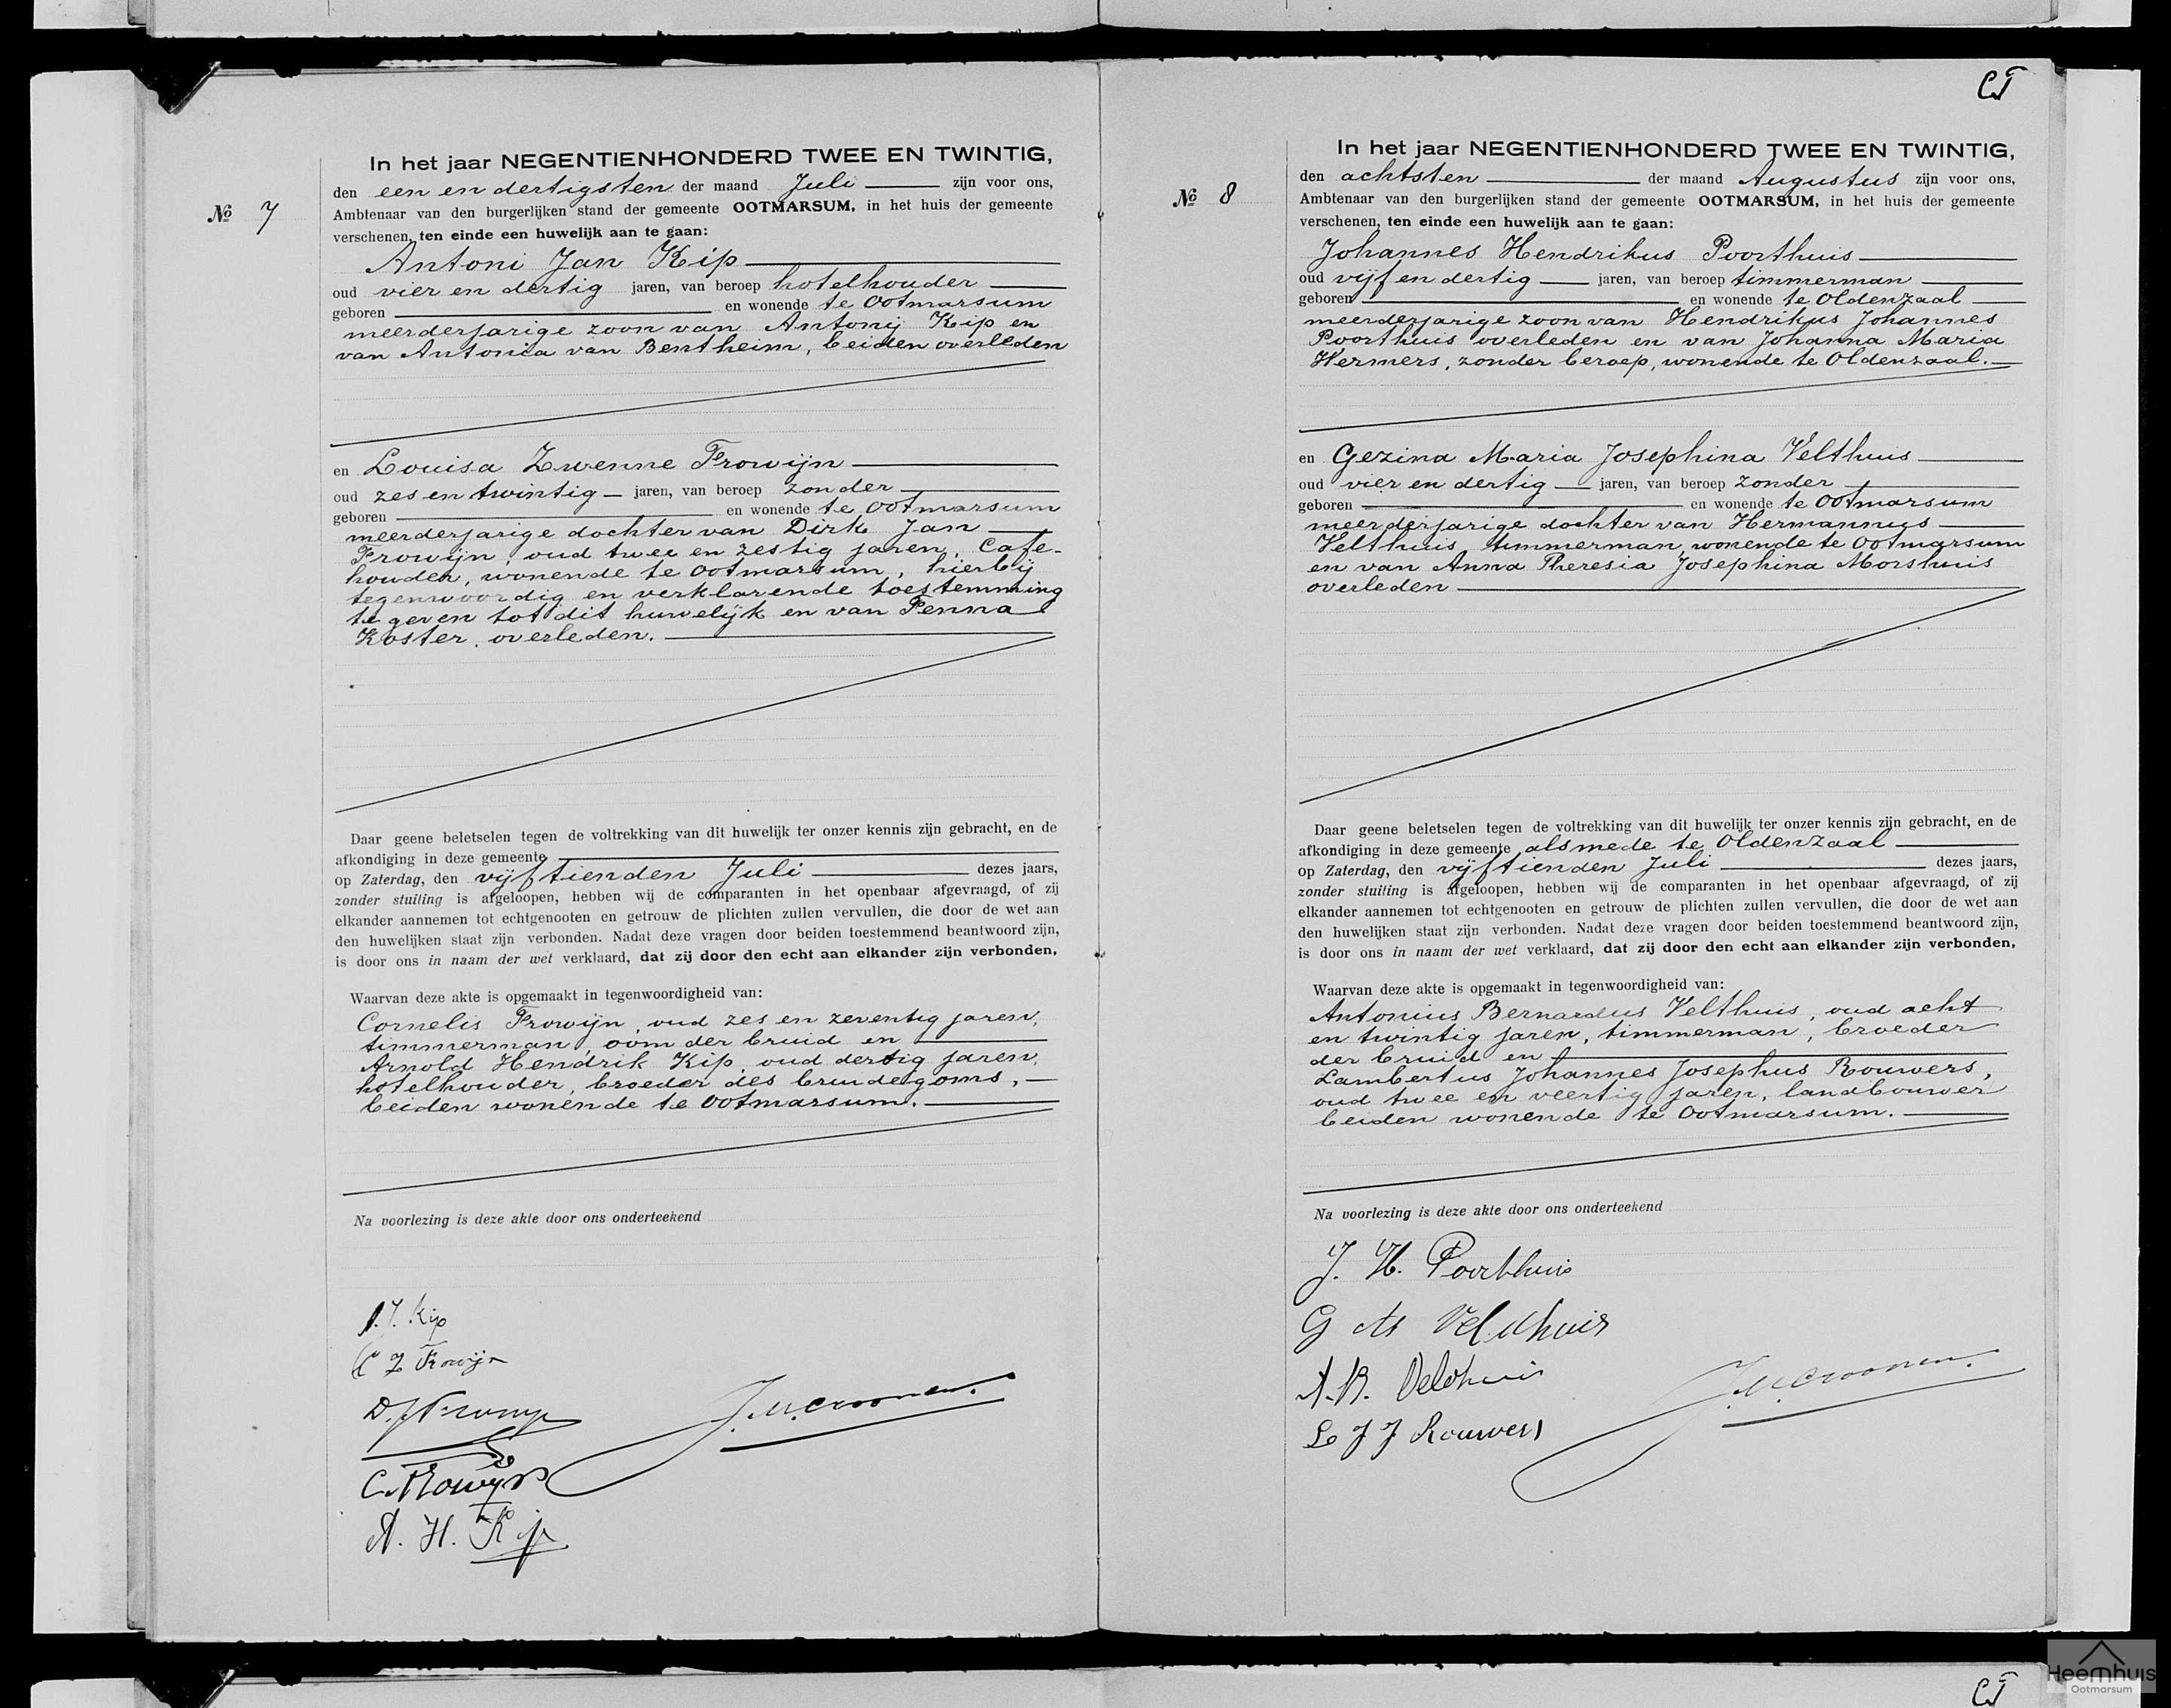 In het jaar NEGENTIENHONDERD TWEE EN TWINTIG,
den een en dertigsten der maand Juli zijn voor ons,
No 7
Ambtenaar van den burgerlijken stand der gemeente OOTMARSUM, in het huis der gemeente
verschenen, ten einde een huwelijk aan te gaan:
Antoni Jan Kip
oud vier en dertig jaren, van beroep hotelhouder
geboren en wonende te Ootmarsum
meerderjarige zoon van Antonij Kip en
van Antonia van Bentheim, beiden overleden
en Louisa Zwenne Frowijn
oud zes en twintig jaren, van beroep zonder
geboren en wonende te Ootmarsum
meerderjarige dochter van Dirk Jan
Frowijn, oud twee en zestig jaren, Cafe-
houder, wonende te Ootmarsum, hierbij
tegenwoordig en verklarende toestemming
te geven tot dit huwelijk en van Fenna
Koster, overleden.
Daar geene beletselen tegen de voltrekking van dit huwelijk ter onzer kennis zijn gebracht, en de
afkondiging in deze gemeente
op Zaterdag, den vijftienden Juli dezes jaars,
zonder stuiting is afgeloopen, hebben wij de comparanten in het openbaar afgevraagd, of zij
elkander aannemen tot echtgenooten en getrouw de plichten zullen vervullen, die door de wet aan
den huwelijken staat zijn verbonden. Nadat deze vragen door beiden toestemmend beantwoord zijn,
is door ons in naam der wet verklaard, dat zij door den echt aan elkander zijn verbonden,
Waarvan deze akte is opgemaakt in tegenwoordigheid van:
Cornelis Frowijn, oud zes en zeventig jaren,
timmerman, oom der bruid en
Arnold Hendrik Kip, oud dertig jaren,
hotelhouder, broeder des bruidegoms,
beiden wonende te Ootmarsum.
Na voorlezing is deze akte door ons onderteekend
A. J. Kip
L Z Frowijn
D. J Frowijn
C. Frowijn
A. H. Kip
CJ
In het jaar NEGENTIENHONDERD TWEE EN TWINTIG,
den achtsten der maand Augustus zijn voor ons,
No 8
Ambtenaar van den burgerlijken stand der gemeente OOTMARSUM, in het huis der gemeente
verschenen, ten einde een huwelijk aan te gaan:
Johannes Hendrikus Poorthuis
oud vijf en dertig jaren, van beroep timmerman
geboren en wonende te Oldenzaal
meerderjarige zoon van Hendrikus Johannes
Poorthuis overleden en van Johanna Maria
Hermers, zonder beroep, wonende te Oldenzaal.
en Gezina Maria Josephina Velthuis
oud vier en dertig jaren, van beroep zonder
geboren en wonende te Ootmarsum
meerderjarige dochter van Hermannus
Velthuis, timmerman, wonende te Ootmarsum
en van Anna Theresia Josephina Morshuis
overleden
Daar geene beletselen tegen de voltrekking van dit huwelijk ter onzer kennis zijn gebracht, en de
afkondiging in deze gemeente alsmede te Oldenzaal
op Zaterdag, den vijftienden Juli dezes jaars,
zonder stuiting is afgeloopen, hebben wij de comparanten in het openbaar afgevraagd, of zij
elkander aannemen tot echtgenooten en getrouw de plichten zullen vervullen, die door de wet aan
den huwelijken staat zijn verbonden. Nadat deze vragen door beiden toestemmend beantwoord zijn,
is door ons in naam der wet verklaard, dat zij door den echt aan elkander zijn verbonden,
Waarvan deze akte is opgemaakt in tegenwoordigheid van:
Antonius Bernardus Velthuis, oud acht
en twintig jaren, timmerman, broeder
der bruid en
Lambertus Johannes Josephus Rouwers,
oud twee en veertig jaren, landbouwer
beiden wonende te Ootmarsum.
Na voorlezing is deze akte door ons onderteekend
J. H. Poorthuis
G M Veldhuis
A. B. Veldhuis
L J J Rouwers
CJ
Heemhuis
Ootmarsum